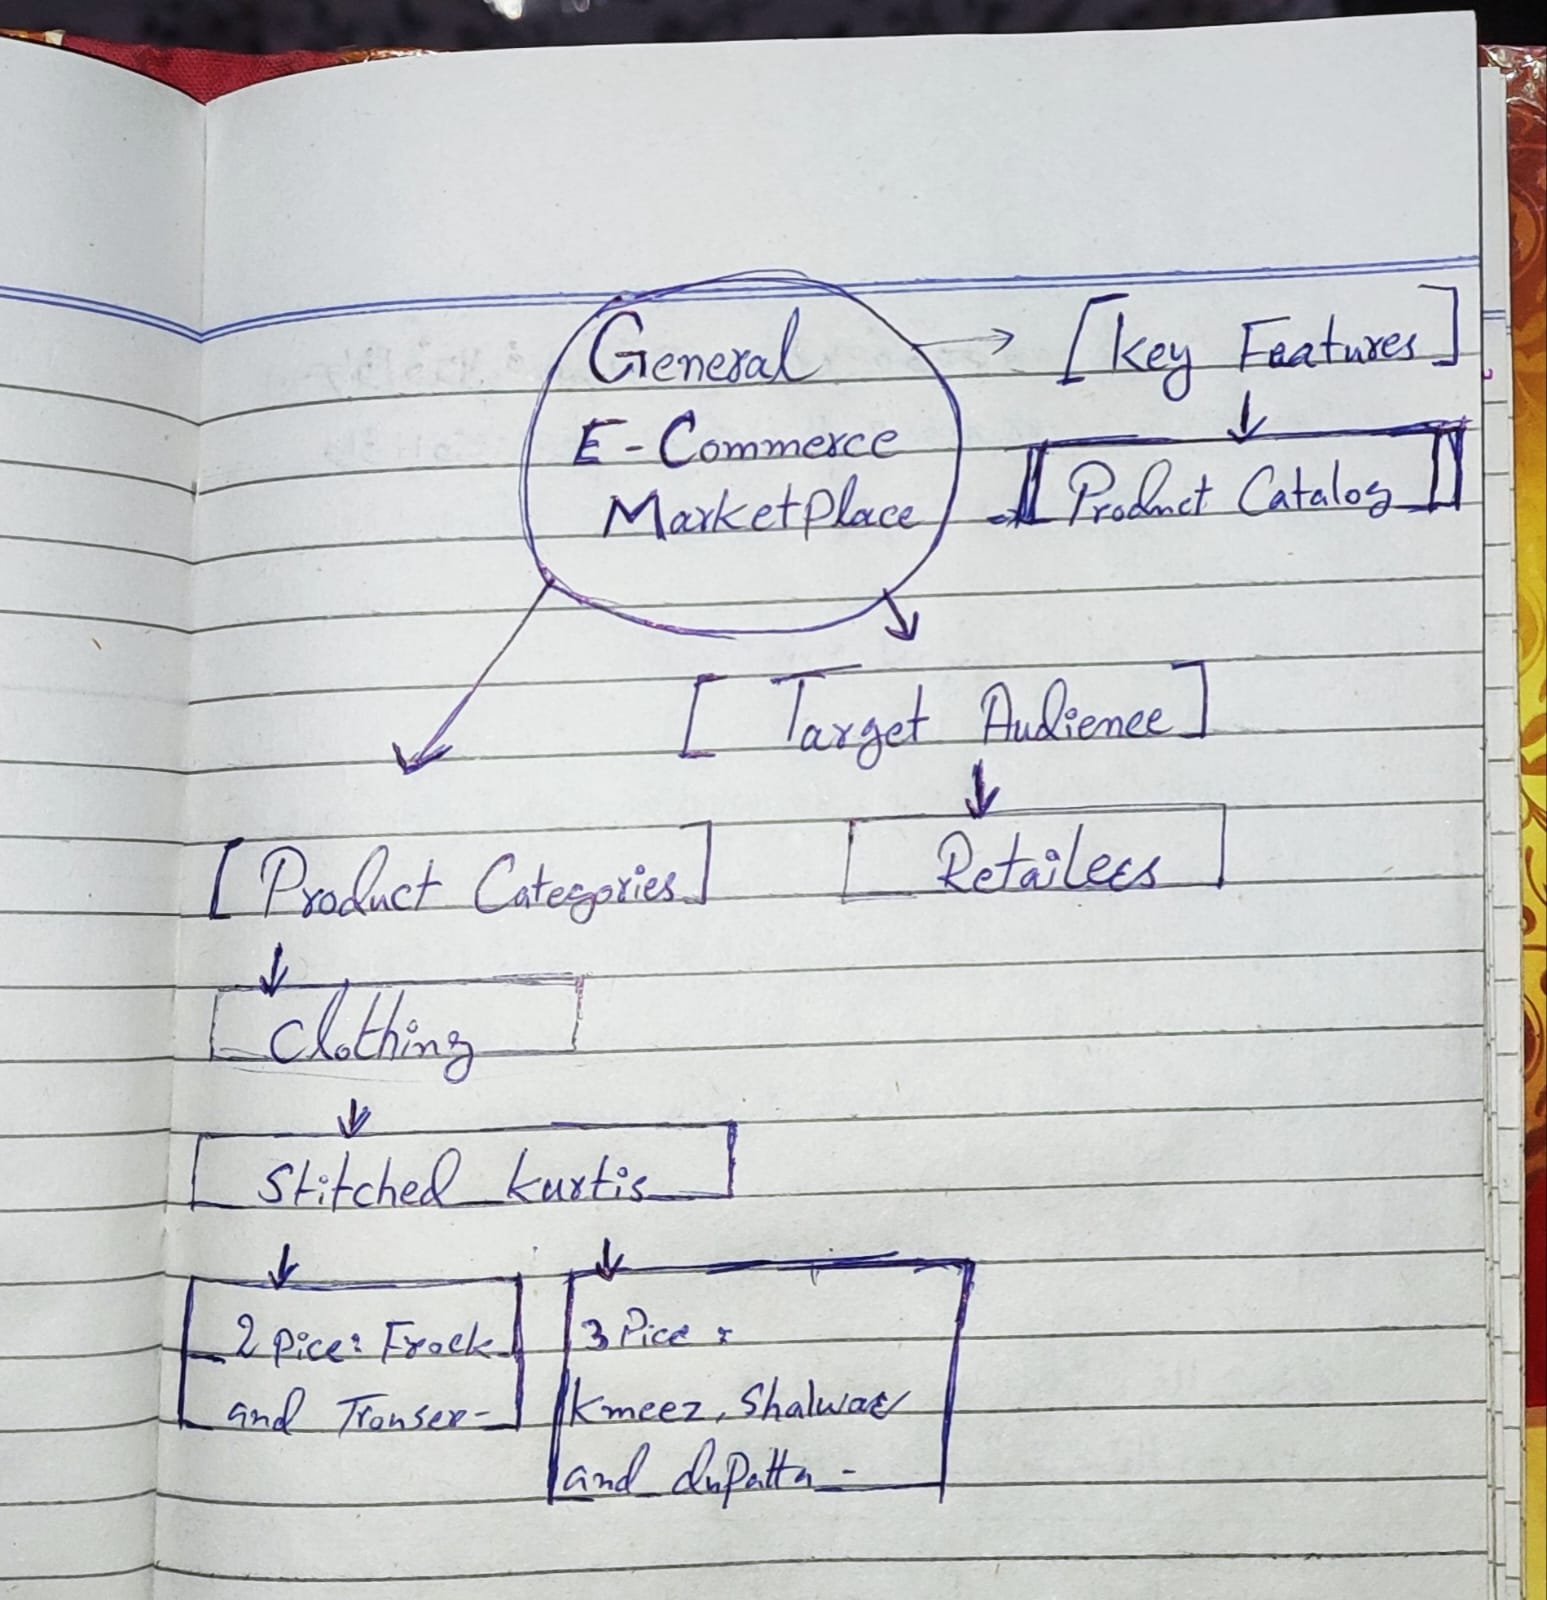 General
E-Commerce
Marketplace
[Key Features]
Product Catalog
[Target Audience]
Retailers
[Product Categories]
Clothing
Stitched kurtis
2 pice: Frock
and Trouser-
3 Pice:
Kmeez, Shalwar
and duPatta -